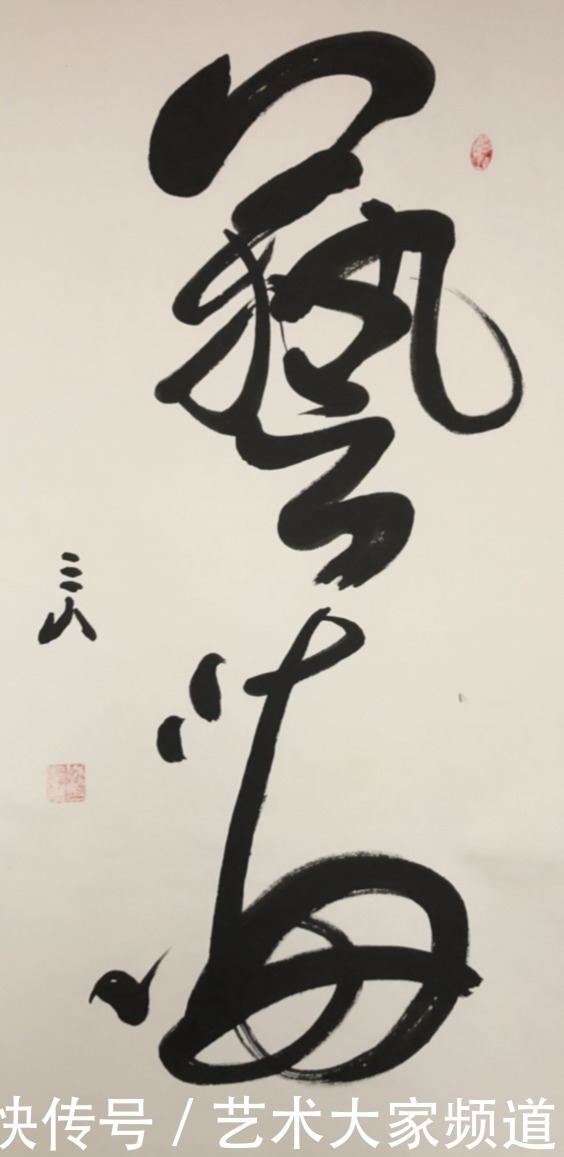 藝海
三山
快传号 / 艺术大家频道